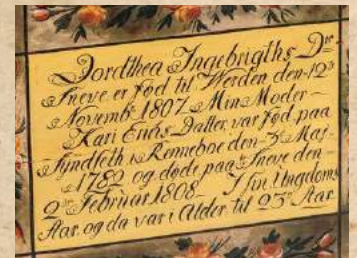 Dordthea Ingebrigths Dr
Sneve er fød til Werden den 12te
Novembr 1807. Min Moder
Kari Erichs Datter, var fød paa
Renneboe den 3e Mai
1782 og døde paa Sneve den
2 Februar 1808 I sin Ungdoms
Aar og da var i Alder til 25de Aar